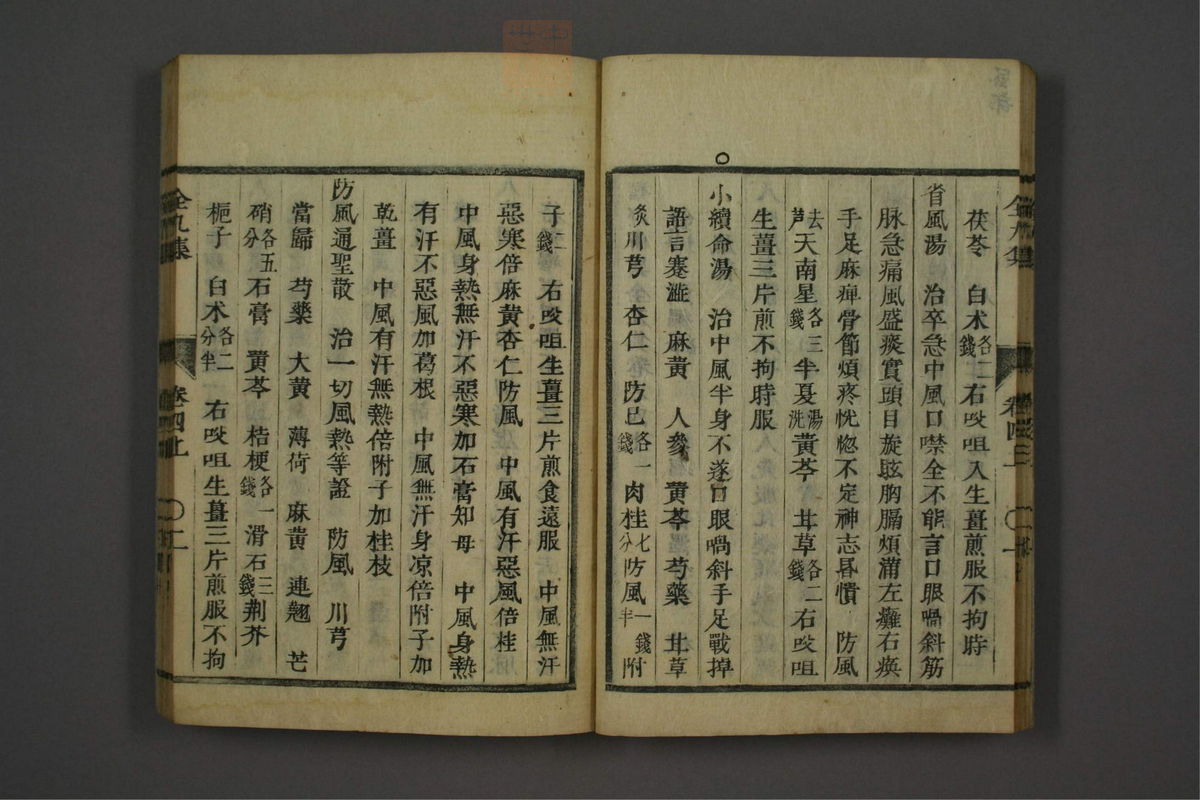 茯苓 白术各二錢右㕮咀入生薑煎服不拘時
省風湯 治卒急中風口噤全不能言口眼喎斜筋
脉急痛風盛痰實頭目旋眩胸膈煩滿左癱右瘓
手足麻痺骨節煩疼恍惚不定神志昬憒 防風
去芦天南星各三錢半夏湯洗黃芩 甘草各二錢右㕮咀
生薑三片煎不拘時服
小續命湯 治中風半身不遂口眼喎斜手足戰掉
語言蹇澁 麻黃 人參 黃芩 芍藥 甘草
炙川芎 杏仁 防巳各一錢肉桂七分防風一錢半附
子二錢右㕮咀生薑三片煎食遠服 中風無汗
惡寒倍麻黃杏仁防風 中風有汗惡風倍桂
中風身熱無汗不惡寒加石膏知母 中風身熱
有汗不惡風加葛根 中風無汗身凉倍附子加
乾薑 中風有汗無熱倍附子加桂枝
防風通聖散 治一切風熱等證 防風 川芎
當歸 芍藥 大黃 薄荷 麻黃 連翹 芒
硝各五分石膏 黃芩 桔梗各一錢滑石三錢荆芥
梔子 白术各二分半 右㕮咀生薑三片煎服不拘
全九集 卷四上 二